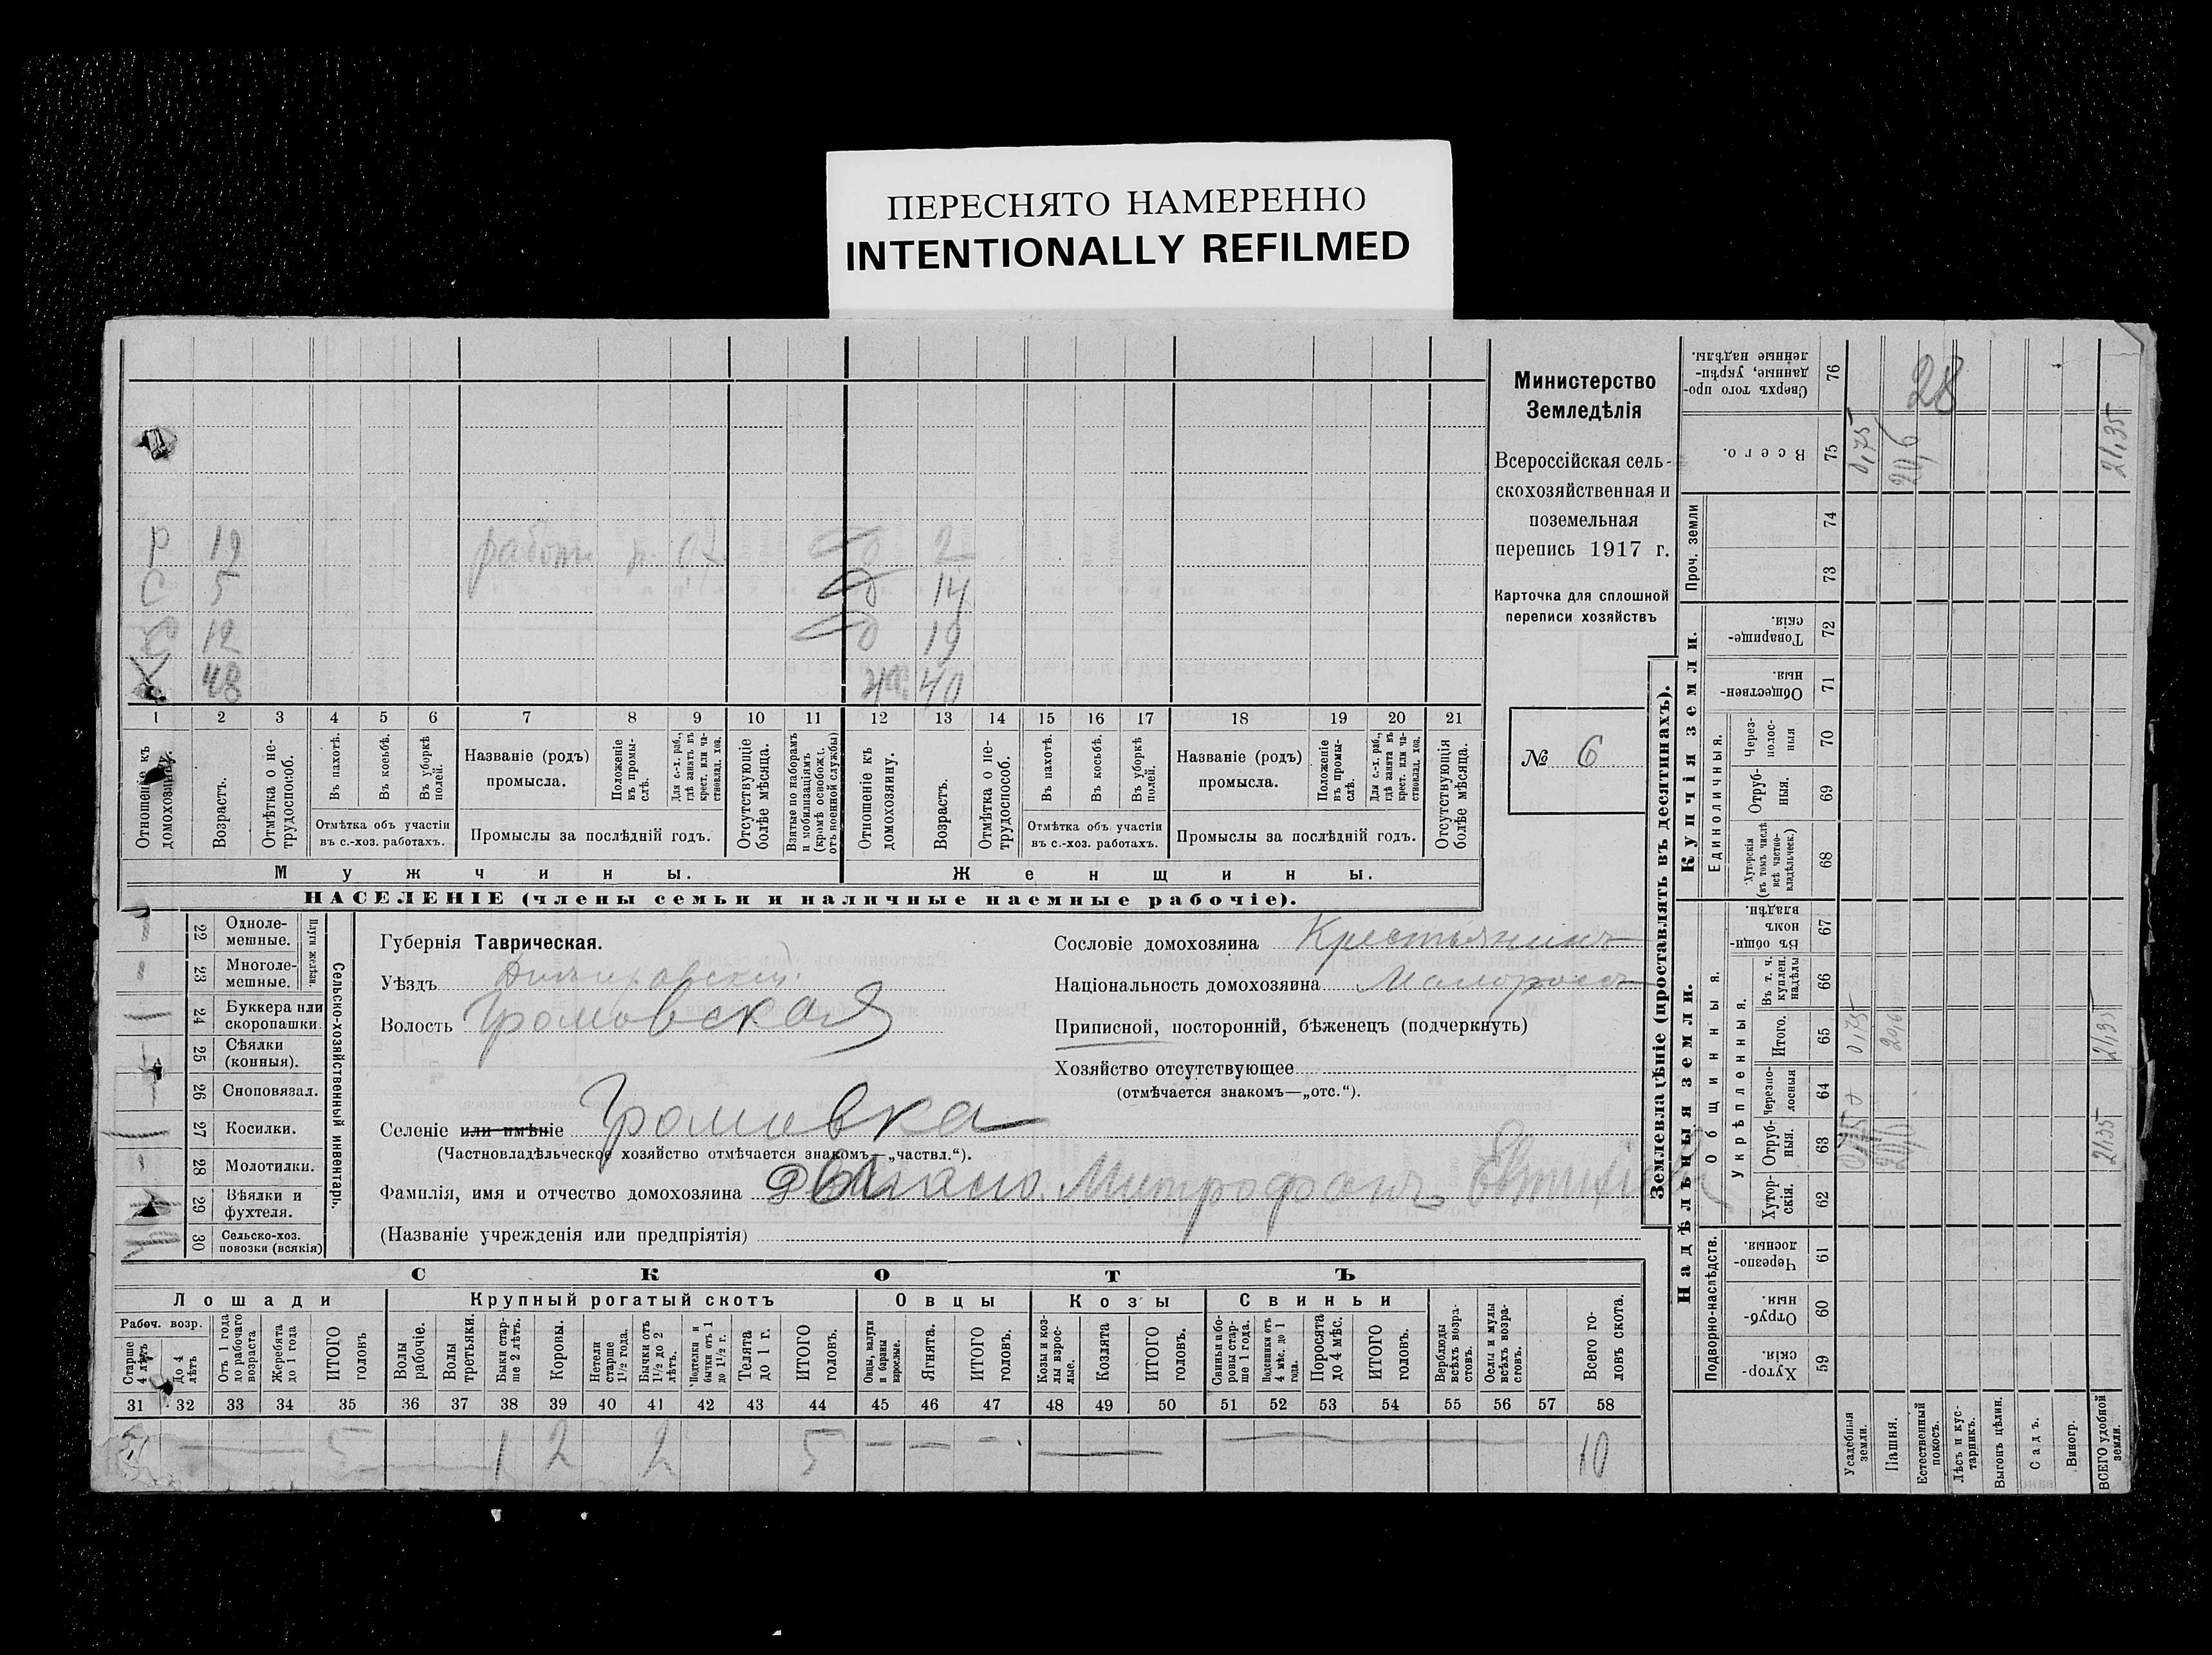 ПЕРЕСНЯТО НАМЕРЕННО
INTENTIONALLY REFILMED
Министерство
Земледѣлія
Всероссійская сель-
скохозяйственная и
поземельная
перепись 1917 г.
Карточка для сплошной
переписи хозяйствъ
№ 6
Р 19 2
С 5 14
С 12 д 19
Х 48 40
1 2 3 4 5 6 7 8 9 10 11 12 13 14 15 16 17 18 19 20 21
Отношеніе къ домохозяину.
Возрастъ.
Отмѣтка о не-трудоспособ.
Въ пахотѣ.
Въ косьбѣ.
Въ уборкѣ полей.
Отмѣтка объ участіи въ с.-хоз. работахъ.
Названіе (родъ) промысла.
Положеніе въ промы-слѣ.
Для с.-х. раб., гдѣ занятъ въ крест. или ча-стновлад. хоз.
Промыслы за послѣдній годъ.
Отсутствующіе болѣе мѣсяца.
Взятые по наборамъ и мобилизаціямъ (кромѣ освобожд. отъ военной службы)
Отношеніе къ домохозяину.
Возрастъ.
Отмѣтка о не-трудоспособ.
Въ пахотѣ.
Въ косьбѣ.
Въ уборкѣ полей.
Отмѣтка объ участіи въ с.-хоз. работахъ.
Названіе (родъ) промысла.
Положеніе въ промы-слѣ.
Для с.-х. раб., гдѣ занята въ крест. или ча-стновлад. хоз.
Промыслы за послѣдній годъ.
Отсутствующія болѣе мѣсяца.
Мужчины. Женщины.
НАСЕЛЕНІЕ (члены семьи и наличные наемные рабочіе).
22 Одноле-мешные.
23 Многоле-мешные.
Плуги желѣзн.
24 Буккера или скоропашки.
25 Сѣялки (конныя).
26 Сноповязал.
27 Косилки.
28 Молотилки.
29 Вѣялки и фухтеля.
30 Сельско-хоз. повозки (всякія)
Сельско-хозяйственный инвентарь.
Губернія Таврическая.
Уѣздъ
Волость Громовская
Селеніе или имѣніе Громовка
(Частновладѣльческое хозяйство отмѣчается знакомъ—„частвл.“).
Фамилія, имя и отчество домохозяина Митрофанъ
(Названіе учрежденія или предпріятія)
Сословіе домохозяина Крестьянинъ
Національность домохозяина Малороссъ
Приписной, посторонній, бѣженецъ (подчеркнуть)
Хозяйство отсутствующее
(отмѣчается знакомъ—„отс.“).
СКОТЪ
Лошади Крупный рогатый скотъ Овцы Козы Свиньи
Рабоч. возр.
Старше 4 лѣтъ
До 4 лѣтъ
Отъ 1 года до рабочаго возраста
Жеребята до 1 года
ИТОГО головъ
Волы рабочіе.
Волы третьяки.
Быки стар-ше 2 лѣтъ.
Коровы.
Нетели старше 1½ года.
Бычки отъ 1½ до 2 лѣтъ.
Подтелки и бычки отъ 1 до 1½ г.
Телята до 1 г.
ИТОГО головъ.
Овцы, валухи и бараны взрослые.
Ягнята.
ИТОГО головъ.
Козы и коз-лы взрос-лые.
Козлята
ИТОГО головъ.
Свиньи и бо-ровы стар-ше 1 года.
Подсвинки отъ 4 мѣс. до 1 года.
Поросята до 4 мѣс.
ИТОГО головъ.
Верблюды всѣхъ возра-стовъ.
Ослы и мулы всѣхъ возра-стовъ.
Всего го-ловъ скота.
31 32 33 34 35 36 37 38 39 40 41 42 43 44 45 46 47 48 49 50 51 52 53 54 55 56 57 58
5 1 2 2 5 — — — — — 10
Землевладѣніе (проставлять въ десятинахъ).
Надѣльныя земли. Купчія земли. Проч. земли
Подворно-наслѣдств.
Общинныя.
Укрѣпленныя.
Единоличныя.
Хутор-скія. 59
Отруб-ныя. 60
Черезпо-лосныя. 61
Хутор-скія. 62
Отруб-ныя. 63
Черезпо-лосныя 64
Итого. 65
Въ т. ч. куплен. надѣлы 66
Въ общи-номъ владѣн. 67
Хуторскія (въ томъ числѣ всѣ частно-владѣльческ.) 68
Отруб-ныя. 69
Через-полос-ныя 70
Обществен-ныя. 71
Товарище-скія. 72
73
74
Всего. 75
Сверхъ того про-данные, укрѣп-ленные надѣлы. 76
Усадебныя земли. 0,75 0,75
Пашня. 20,6 20,6
Естественный покосъ.
28
Лѣсъ и кус-тарникъ.
Выгонъ цѣлин.
Садъ.
Виногр.
ВСЕГО удобной земли. 21,35 21,35 21,35